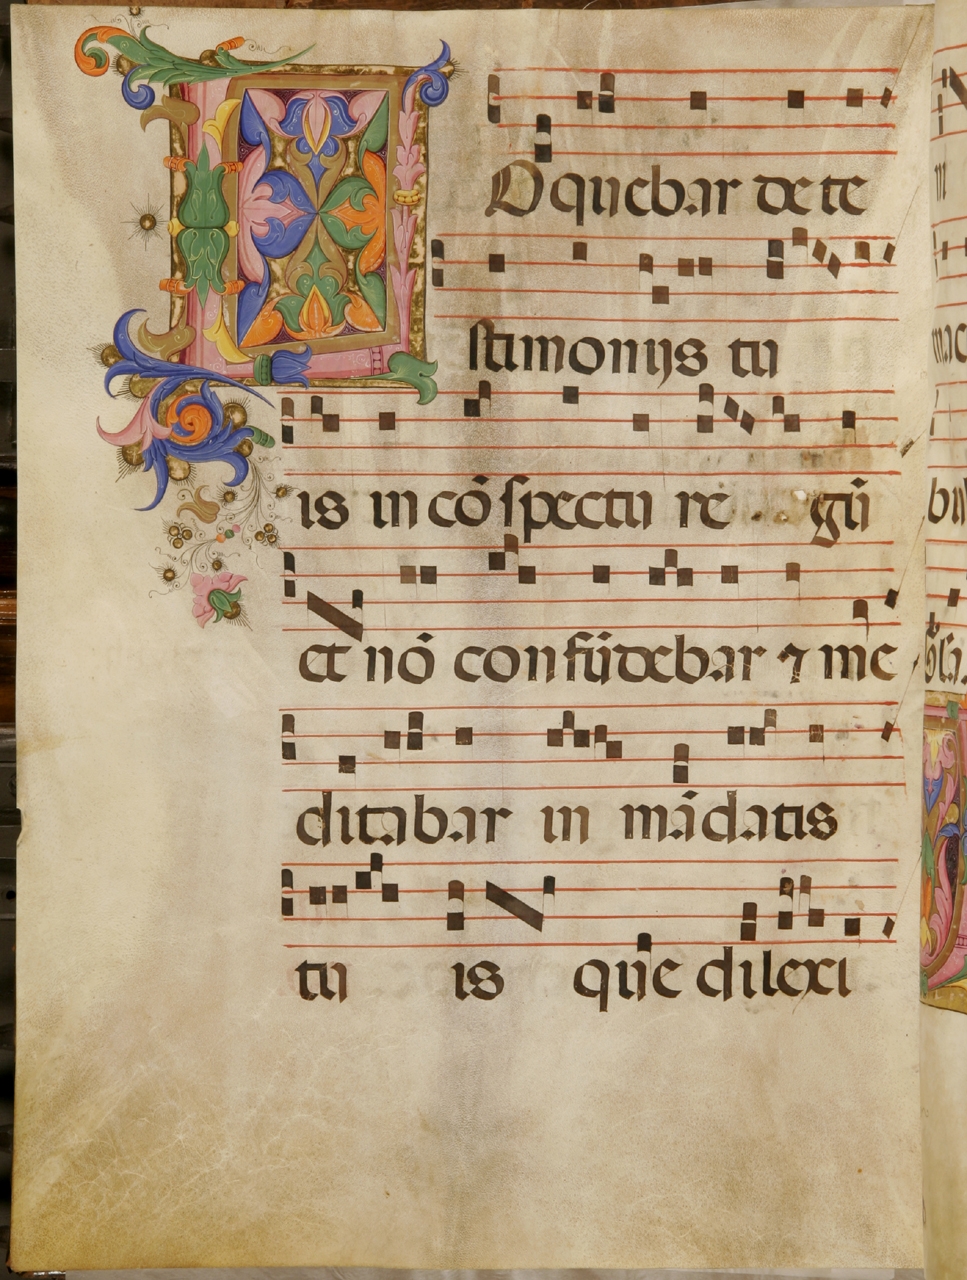 LOquebar de te
stimonijs tu
is in cōspectu re gū
et nō confūdebar ⁊ me
ditabar in mādatis
tu is que dilexi